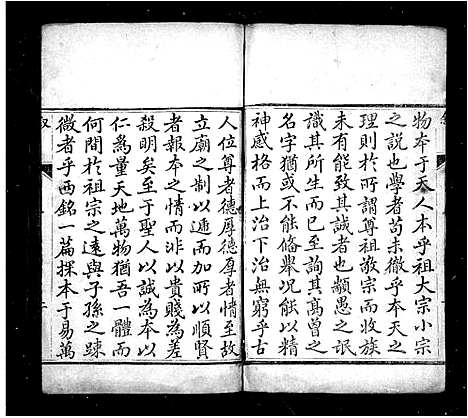 物本于天人本乎祖大宗小宗
之說也學者苟未徹乎本天之
理則於所謂尊祖敬宗而收族
未有能致其誠者也顓愚之氓
識其所生而已至詢其高曾之
名字猶或不能備舉况能以精
神感格而上治下治無窮乎古
人位尊者德厚德厚者情至故
立廟之制以遞而加所以順賢
者報本之情而非以貴賤為差
殺明矣至于聖人以誠為本以
仁為量天地萬物猶吾一體而
何間於祖宗之遠與子孫之踈
微者乎西銘一篇探本于易萬